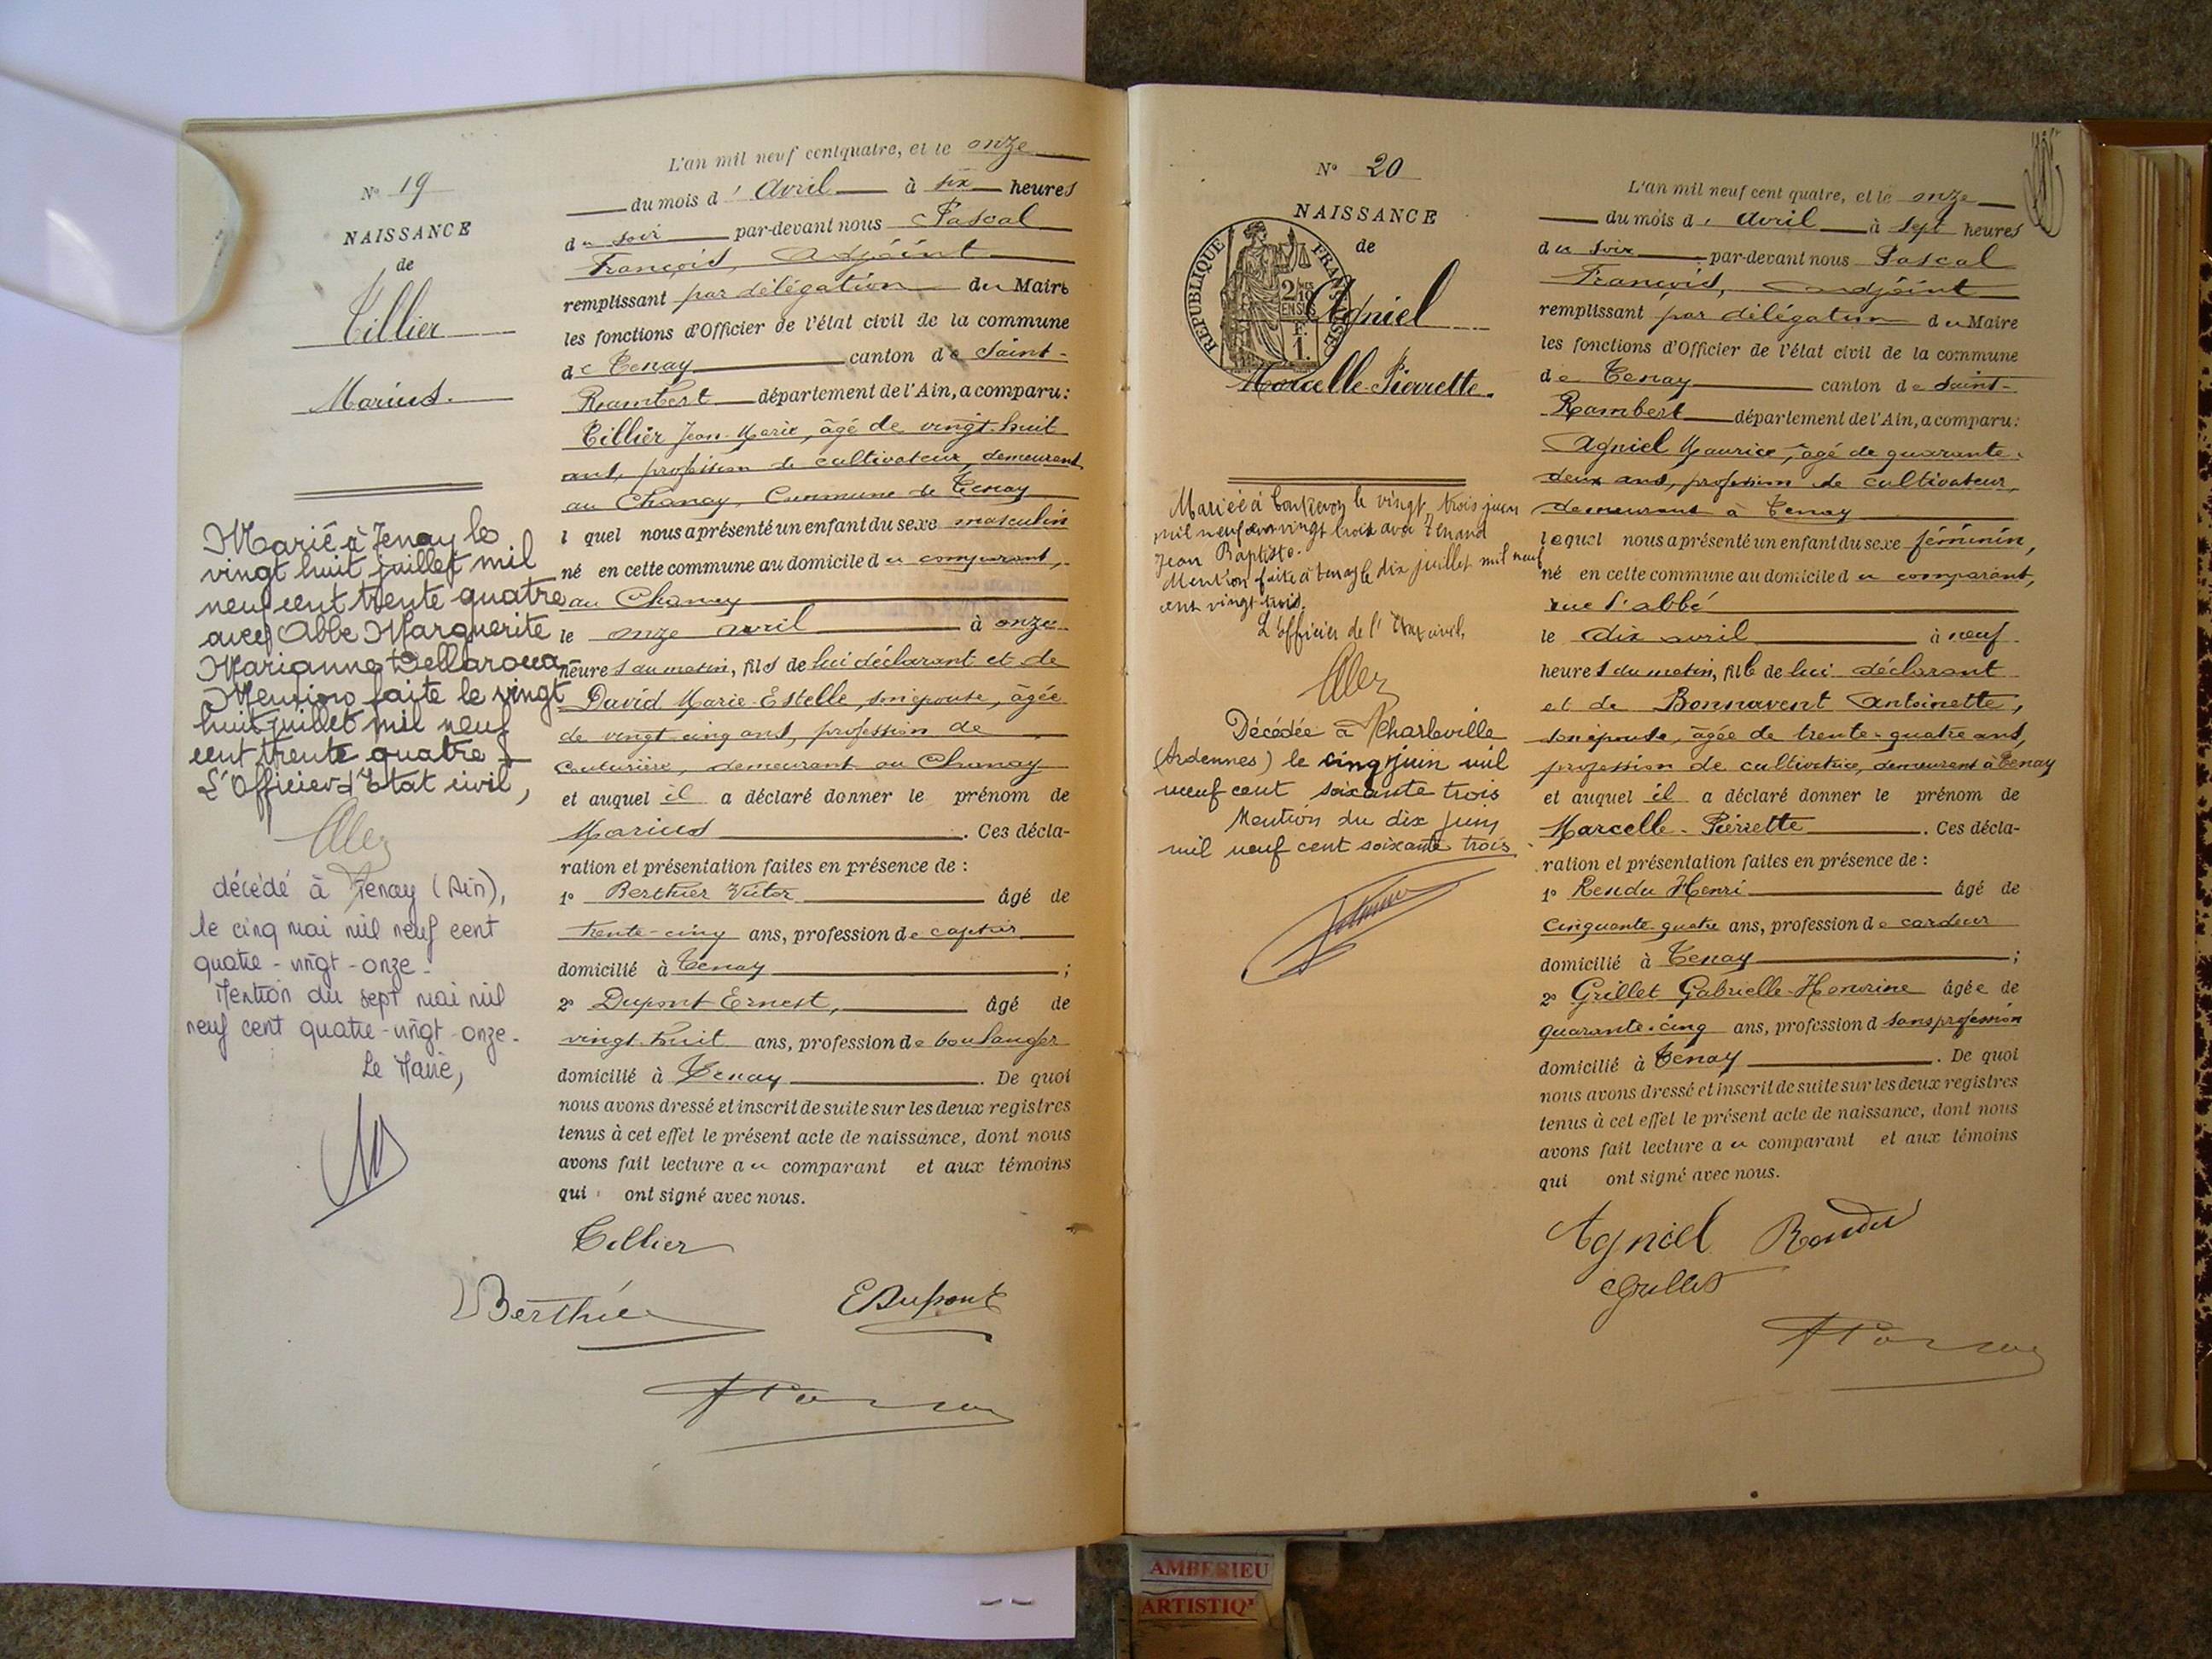 N° 19
NAISSANCE
de
Tillier
Marius.
Marié à Tenay le
vingt huit juillet mil
neuf cent trente quatre
avec Abbe Marguerite
Marianne
Mention faite le vingt
huit juillet mil neuf
cent trente quatre
L'Officier d'Etat civil,
décédé à Tenay (Ain),
le cinq mai mil neuf cent
quatre-vingt-onze.
Mention du sept mai mil
neuf cent quatre-vingt-onze.
Le Maire,
L'an mil neuf cent quatre, et le onze
du mois d'Avril à six heures
du soir par-devant nous Pascal
François, Adjoint
remplissant par délégation du Maire
les fonctions d'Officier de l'état civil de la commune
de Tenay canton de Saint-
Rambert département de l'Ain, a comparu:
Tillier Jean-Marie, âgé de vingt-huit
ans, profession de cultivateur, demeurant
au Chanay, Commune de Tenay
l quel nous a présenté un enfant du sexe masculin
né en cette commune au domicile du comparant,
au Chanay
le onze avril à onze
heures du matin, fils de lui déclarant et de
David Marie-Estelle, son épouse, âgée
de vingt cinq ans, profession de
couturière, demeurant au Chanay
et auquel il a déclaré donner le prénom de
Marius. Ces décla-
ration et présentation faites en présence de :
1° Berthier Victor âgé de
trente-cinq ans, profession de
domicilié à Tenay ;
2° Dupont Ernest, âgé de
vingt-huit ans, profession de boulanger
domicilié à Tenay. De quoi
nous avons dressé et inscrit de suite sur les deux registres
tenus à cet effet le présent acte de naissance, dont nous
avons fait lecture au comparant et aux témoins
qui ont signé avec nous.
Tillier
Berthier
E Dupont
N° 20
NAISSANCE
de
Agniel
Marcelle-Pierrette.
REPUBLIQUE FRANÇAISE
2/10 EN SUS
1 F.
Mariée à le vingt trois juin
mil neuf cent vingt trois avec
Jean Baptiste.
Mention faite à Tenay le dix juillet mil neuf
cent vingt trois.
L'officier de l'Etat civil,
Décédée à Charleville
(Ardennes) le cinq juin mil
neuf cent soixante trois
Mention du dix juin
mil neuf cent soixante trois
L'an mil neuf cent quatre, et le onze
du mois d'Avril à sept heures
du soir par-devant nous Pascal
François, Adjoint
remplissant par délégation du Maire
les fonctions d'Officier de l'état civil de la commune
de Tenay canton de Saint-
Rambert département de l'Ain, a comparu:
Agniel Maurice, âgé de quarante-
deux ans, profession de cultivateur,
demeurant à Tenay
lequel nous a présenté un enfant du sexe féminin,
né en cette commune au domicile du comparant,
rue l'abbé
le dix avril à neuf
heures du matin, fille de lui déclarant
et de Bonnavent Antoinette,
son épouse, âgée de trente-quatre ans,
profession de cultivatrice, demeurant à Tenay
et auquel il a déclaré donner le prénom de
Marcelle-Pierrette. Ces décla-
ration et présentation faites en présence de :
1° Rendu Henri âgé de
cinquante-quatre ans, profession de cardeur
domicilié à Tenay ;
2° Grillet Gabrielle-Honorine âgée de
quarante-cinq ans, profession d sans profession
domicilié à Tenay. De quoi
nous avons dressé et inscrit de suite sur les deux registres
tenus à cet effet le présent acte de naissance, dont nous
avons fait lecture au comparant et aux témoins
qui ont signé avec nous.
Agniel Rendu
Grillet
AMBERIEU
ARTISTIQ